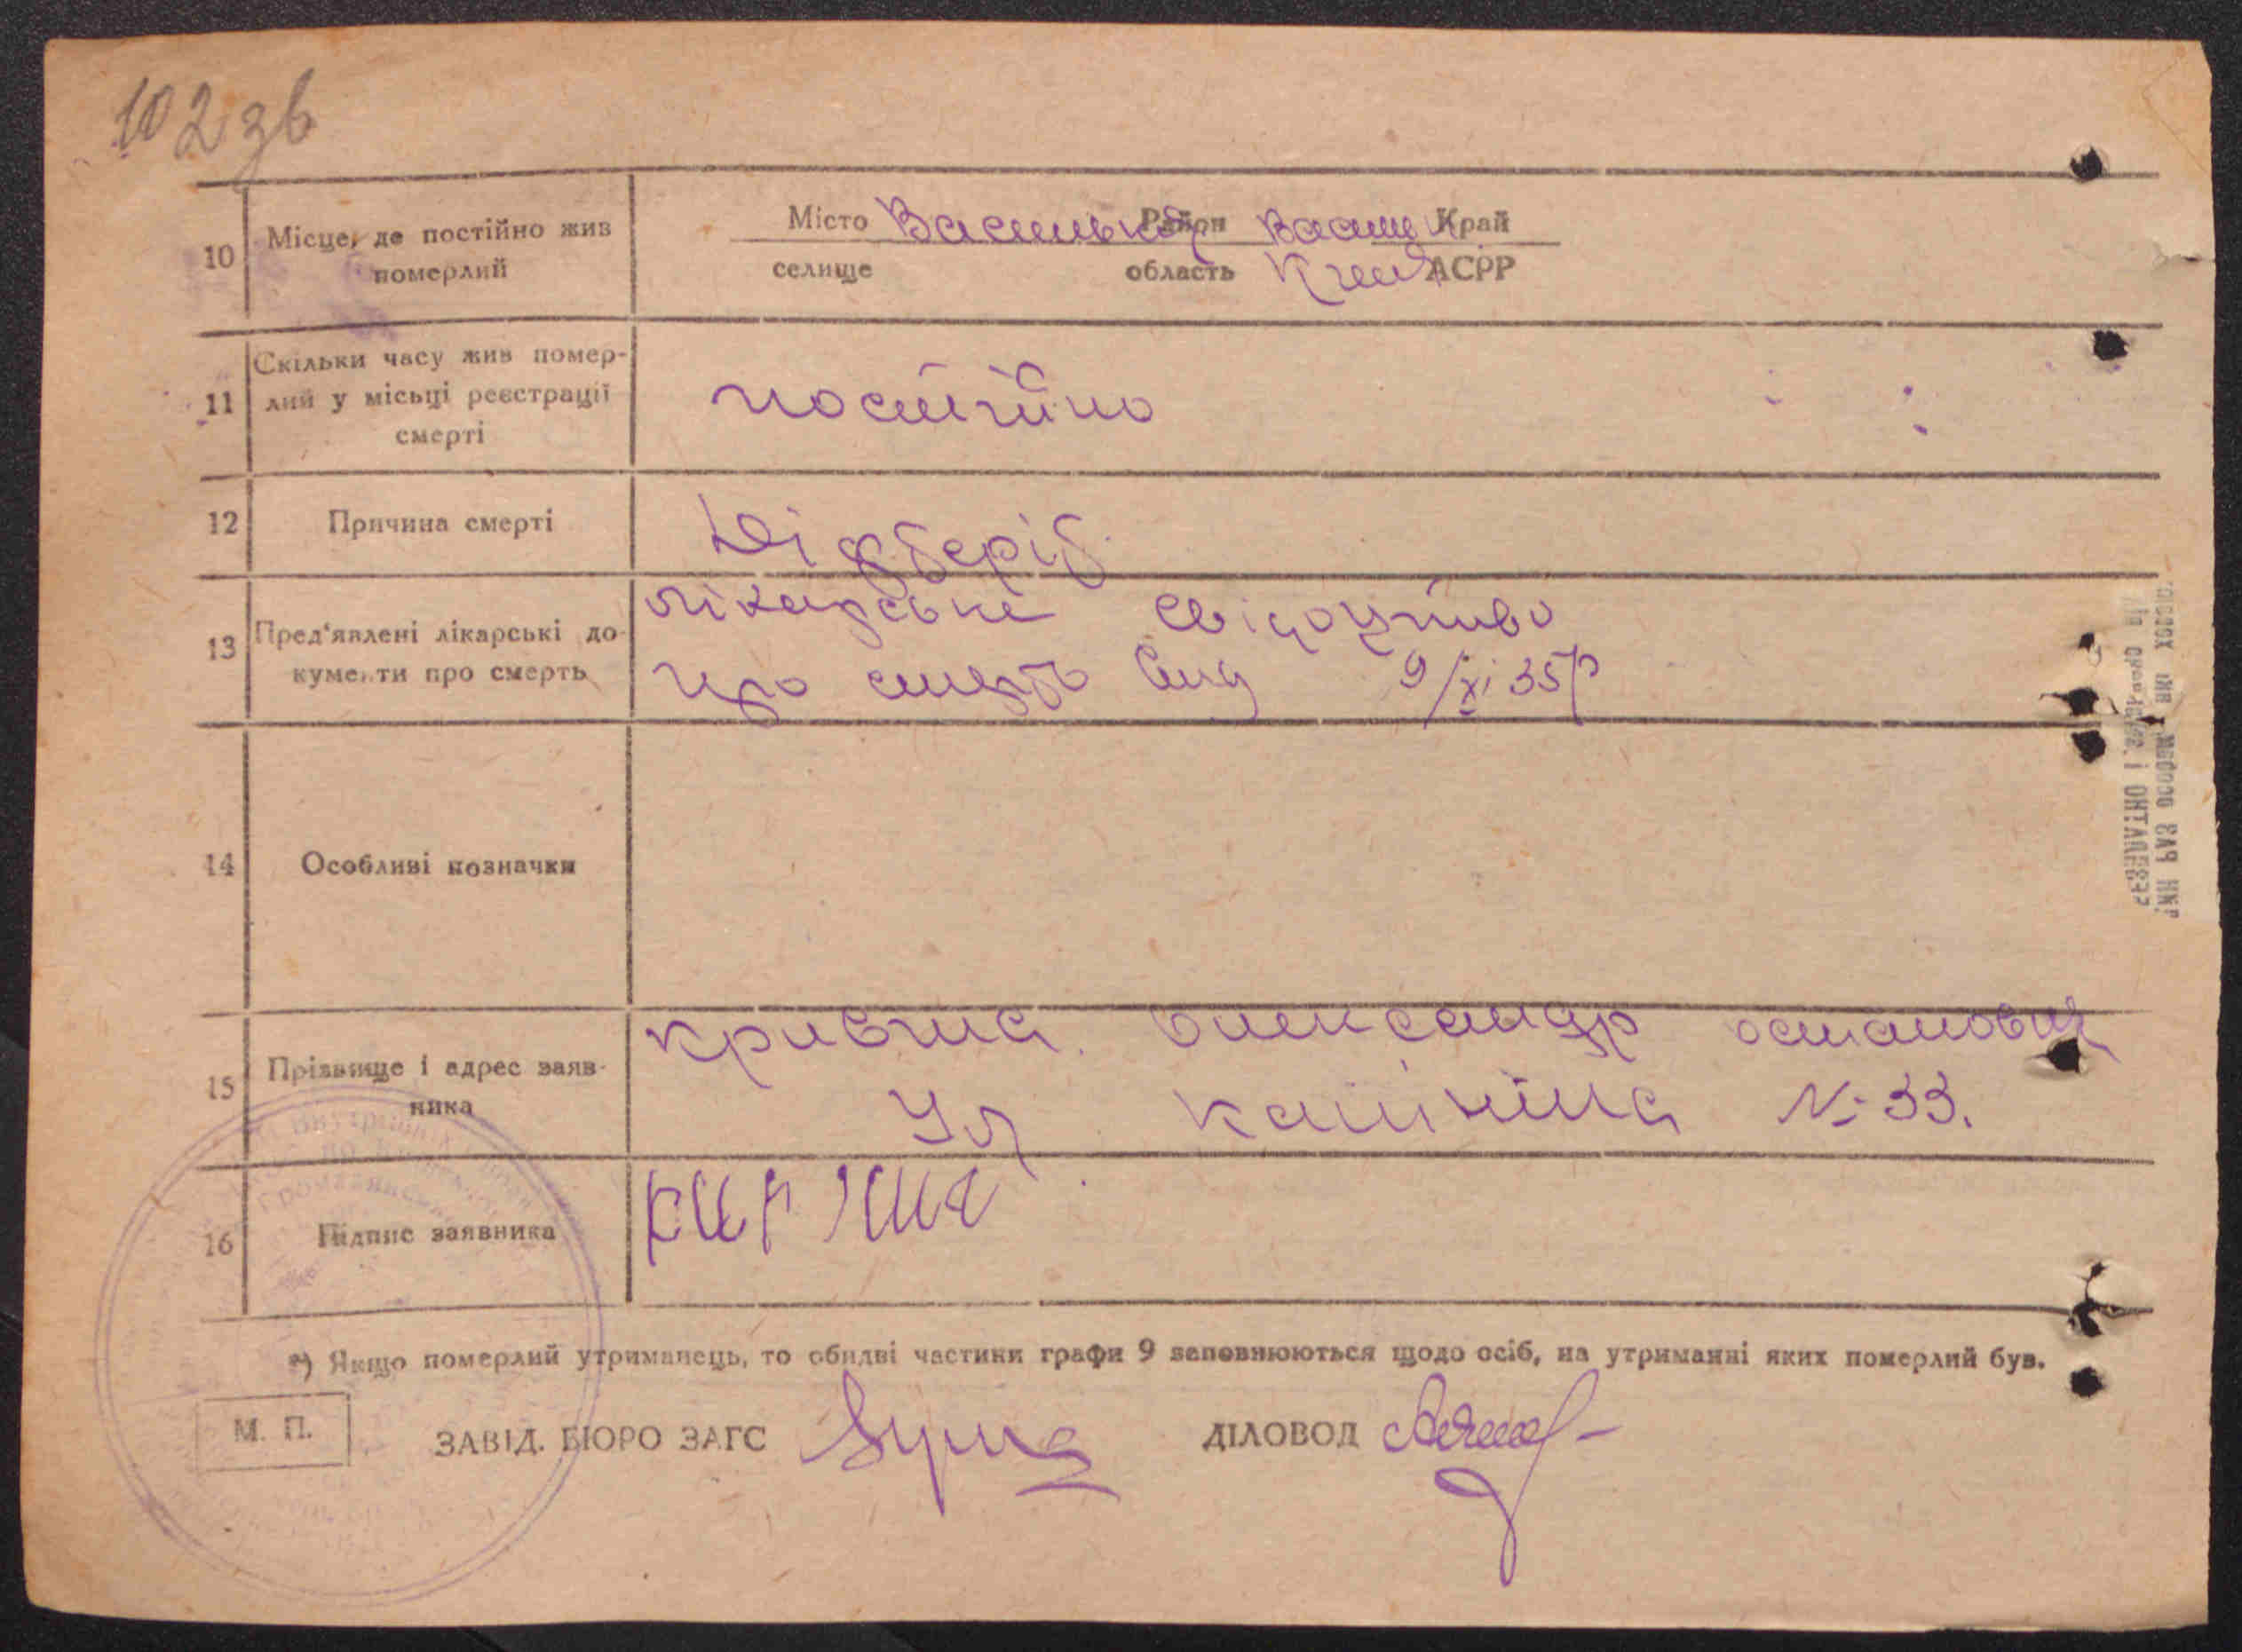 102 зв
10 Місце, де постійно жив померлий
Місто Васильков Район Васильк Край
селище область Київ АСРР
11 Скільки часу жив помер-
лий у місьці реєстрації
смерті
постійно
12 Причина смерті
Діфтеріт
13 Пред'явлені лікарські до-
кументи про смерть
лікарське свідоцтво
про смерть 9/XI 35 р
14 Особливі позначки
15 Прізвище і адрес заяв-
ника
Кривша Олександр Остапович
Ул Калініна № 33.
16 Підпис заявника
*) Якщо померлий утриманець, то обидві частини графи 9 заповнюються щодо осіб, на утриманні яких померлий був.
М. П. ЗАВІД. БЮРО ЗАГС ДІЛОВОД